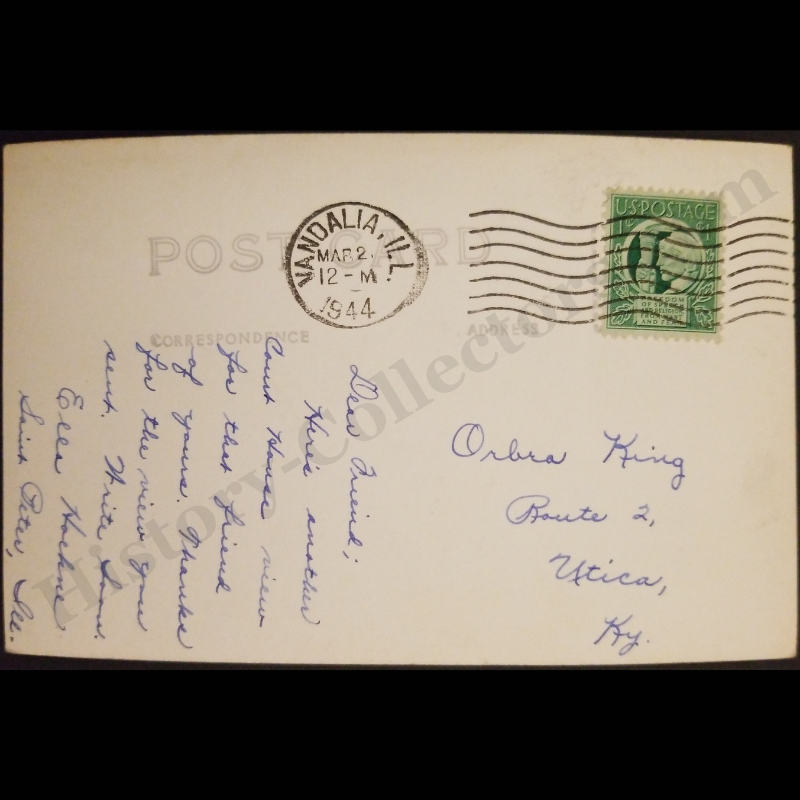 POST CARD
VANDALIA, ILL.
MAR 2
12 - M
1944
U.S. POSTAGE
1¢
FREEDOM
OF SPEECH
AND RELIGION
FROM WANT
AND FEAR
CORRESPONDENCE
ADDRESS
Dear Friend;
Here's another
Court House view
for that friend
of yours. Thanks
for the view you
sent. Write Soon.
Ella
Saint Peter, Ill.
Orbra King
Route 2,
Utica,
Ky.